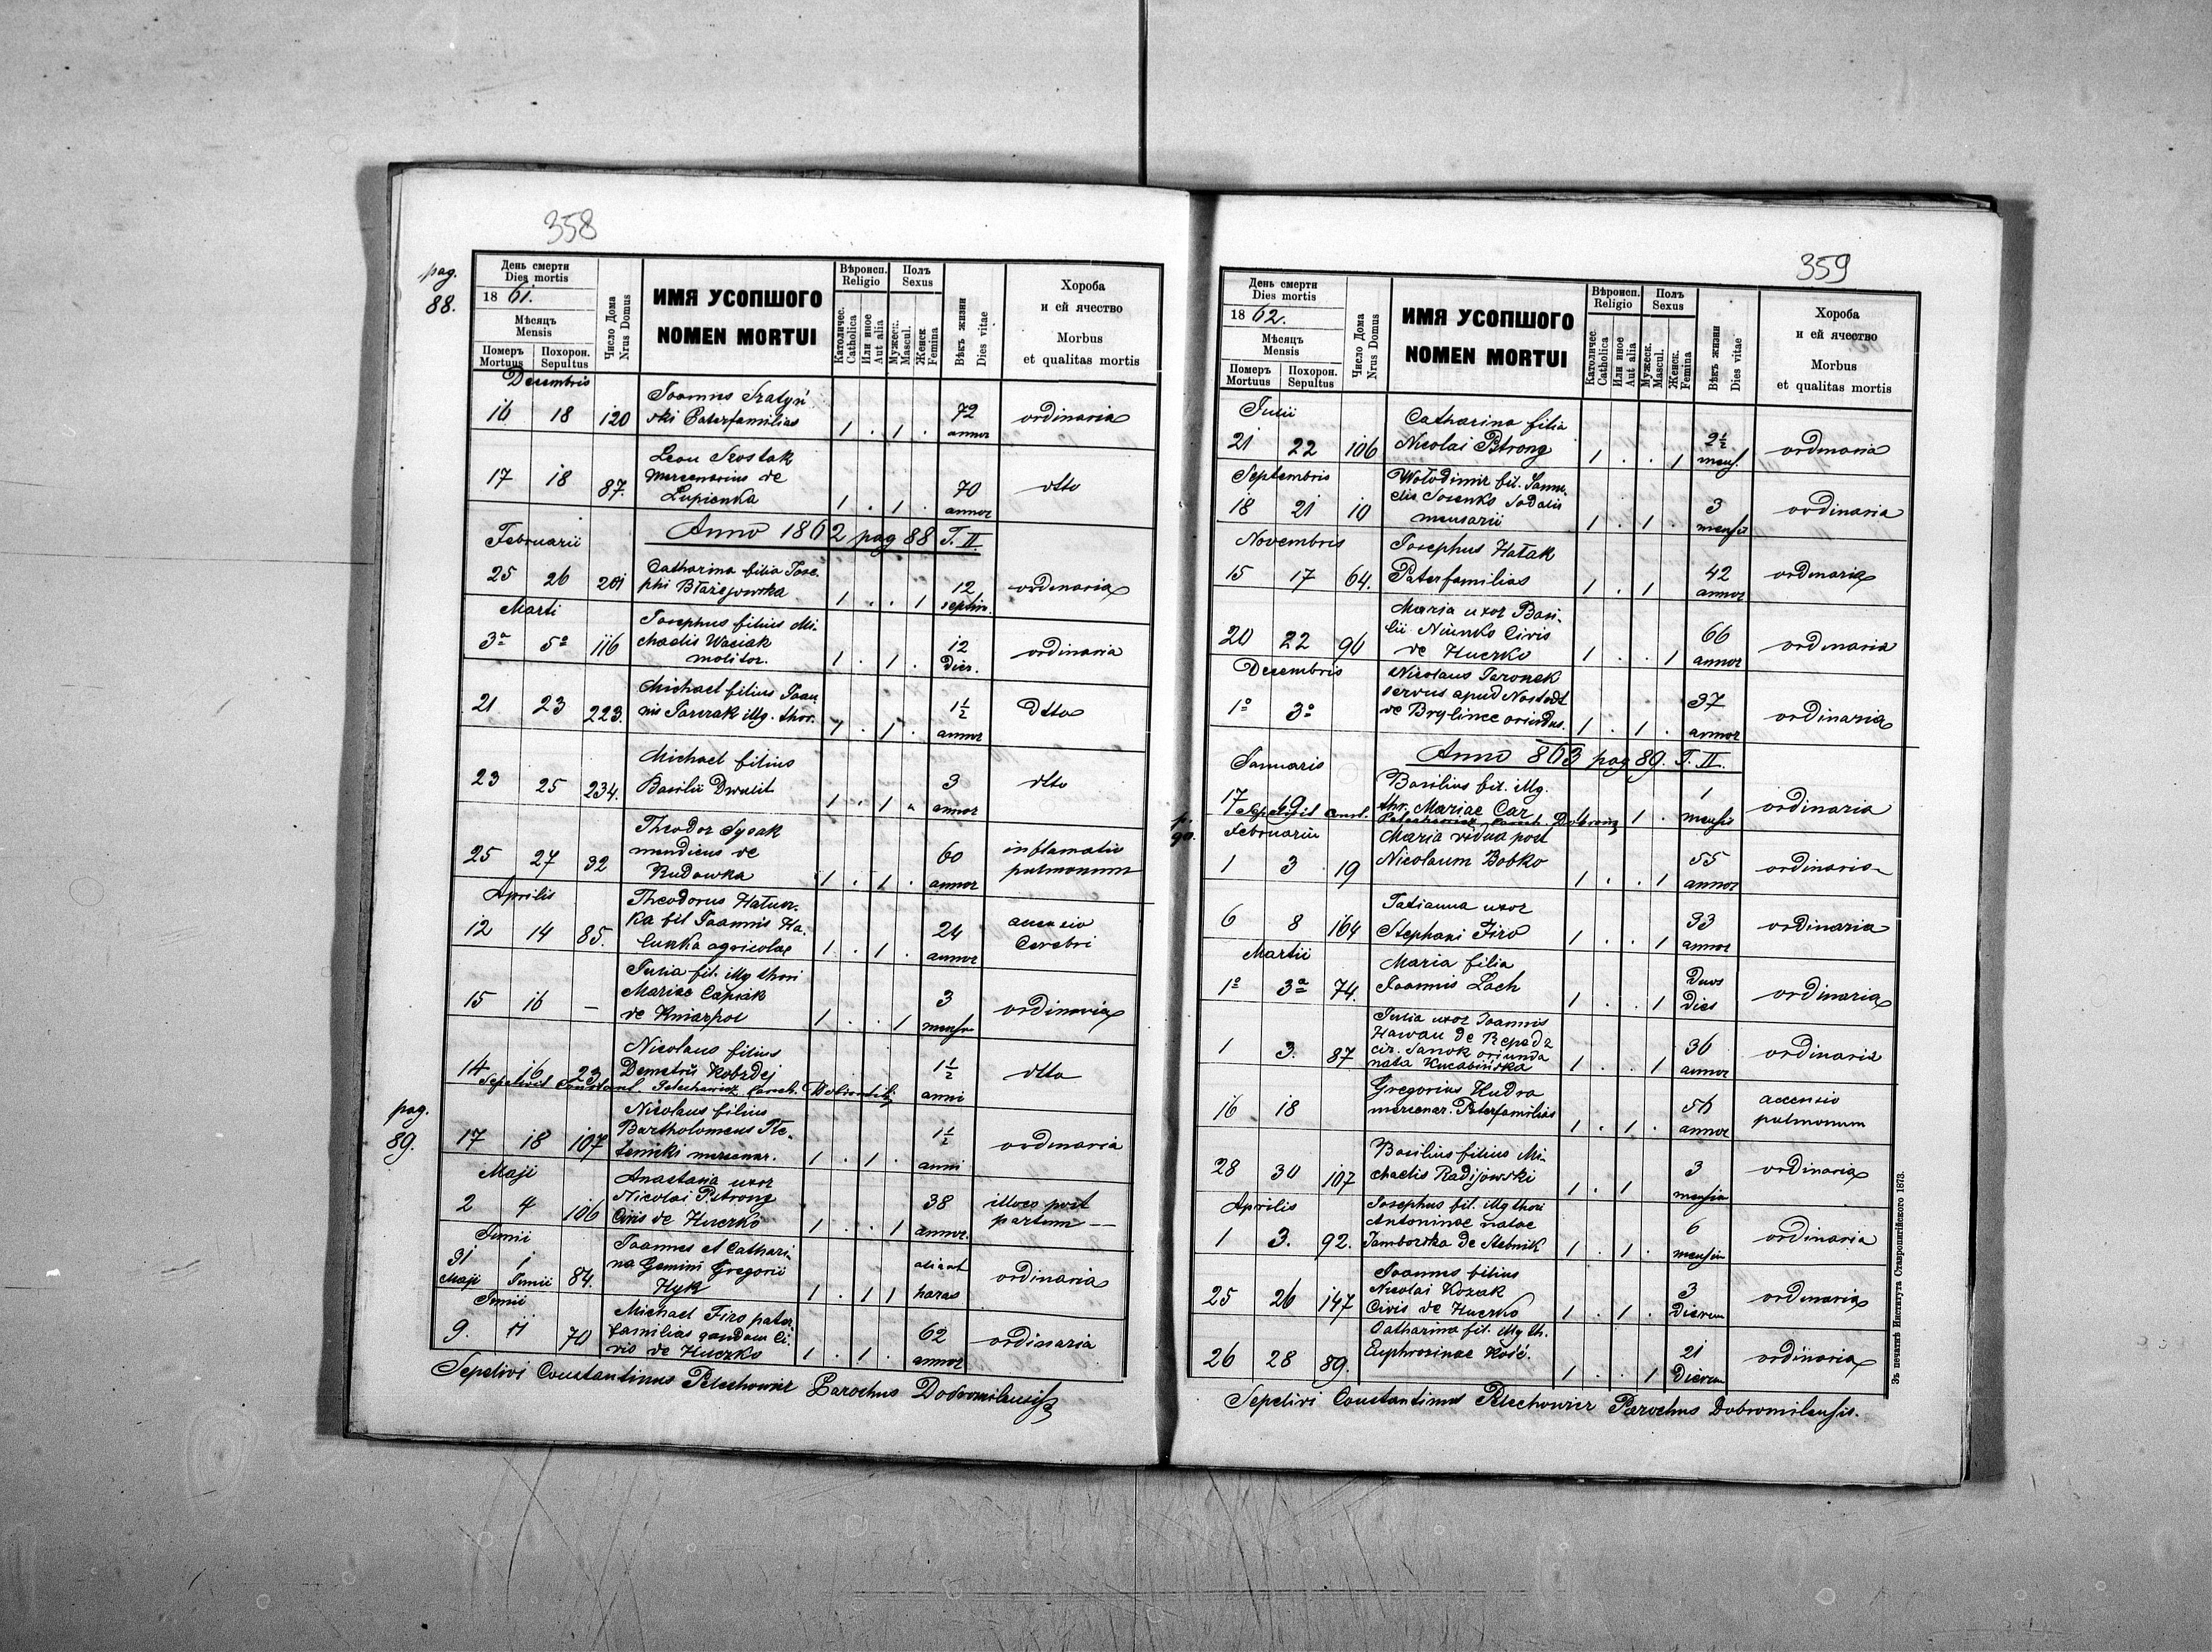 358
pag.
88.
День смерти
Dies mortis
18 61.
Мѣсяцъ
Mensis
Померъ
Mortuus
Похорон.
Sepultus
Число Дома
Nrus Domus
ИМЯ УСОПШОГО
NOMEN MORTUI
Вѣроисп.
Religio
Католичес.
Catholica
Или иное
Aut alia
Полъ
Sexus
Мужеск.
Mascul.
Женск
Femina
Вѣкъ жизни
Dies vitae
Хороба
и ей ячество
Morbus
et qualitas mortis
Decembris
16 18 120 Joannes
ski Paterfamilias 1 . 1 . 72 annor ordinaria
17 18 87. Leon Szostak
mercenarius de
Lupienka 1 . 1 . 70 annor dtto
Anno 1862 pag 88 T. II.
Februarii
25 26 201 Catharina filia Jose-
phi Błażejowska 1 . . 1 12 septim. ordinaria
Marti
3a 5a 116 Josephus filius Mi-
chaelis Wasiak
molitor. 1 . 1 . 12 Dier. ordinaria
21 23 223. Michael filius Joan
nis illg. thor. 1 . 1 . 1½ annor Dtto
23 25 234. Michael filius
Basilii Dwulit 1 . 1 . 3 annor dtto
25 27 32 Theodor Sysak
mendicus de
Rudawka 1 . 1 . 60 annor inflamatio
pulmonum
Aprilis
12 14 85. Theodorus Hałun-
ka fil Joannis Ha-
łunka agricolae 1 . 1 . 24 annor accensio
Cerebri
15 16 — Julia fil. illg thori
Mariae Capiak
de Kniazpol 1 . . 1 3 mensu ordinaria
14 16 23 Nicolaus filius
Demetrii Kobrdej 1½ anni dtto
Sepelivit Constant Petechowicz paroch. Dobromil
pag.
89.
17 18 107 Nicolaus filius
Bartholomeus
mercenar. 1 . 1 . 1½ anni ordinaria
Maji
2 4 106 Anastasia uxor
Nicolai Pstrong
Civis de Huczko 1 . . 1 38 annor. post
partum —
Junii
31 Maji 1 Junii 84. Joannes et Cathari-
na Gemini Gregorii
Hyk 1 . 1 1 aliquot
horas ordinaria
Junii
9. 11 70 Michael Firo pater-
familias quondam Ci-
vis de Huczko 1 . 1 . 62 annor ordinaria
Sepelivi Constantinus Petechowicz Parochus Dobromilensis
359
День смерти
Dies mortis
18 62.
Мѣсяцъ
Mensis
Померъ
Mortuus
Похорон.
Sepultus
Число Дома
Nrus Domus
ИМЯ УСОПШОГО
NOMEN MORTUI
Вѣроисп.
Religio
Католичес.
Catholica
Или иное
Aut alia
Полъ
Sexus
Мужеск.
Mascul.
Женск.
Femina
Вѣкъ жизни
Dies vitae
Хороба
и ей ячество
Morbus
et qualitas mortis
Julii
21 22 106 Catharina filia
Nicolai Pstrong 1 . . 1 2½ mens. ordinaria
Septembris
18 21 10 Wołodimir fil. Samu-
elis Sosenko Sodalis
mensarii 1 . 1 . 3 mensis ordinaria
Novembris
15 17 64. Josephus Hałak
Paterfamilias 1 . 1 42 annor ordinaria
20 22 90 Maria uxor Basi-
lii Niunko Civis
de Huczko 1 . . 1 66 annor ordinaria
Decembris
1o 3o Nicolaus Taronek
servus apud
de Brylince oriundus. 1 . 1 . 37 annor ordinaria
Anno 863 pag 89. T. II.
Januaris
17 19 Basilius fil. illg.
thr. Mariae Car 1 . 1 mensis ordinaria
Sepelivit Const. Petechowicz Paroch. Dobromil
p.
90.
Februarii
1 3 19 Maria vidua post
Nicolaum Bobko 1 . . 1 55 annor ordinaria
6 8 164 Tatianna uxor
Stephani Firo 1 . . 1 33 annor ordinaria
Martii
1a 3a 74. Maria filia
Joannis Lach 1 . . 1 Duos
Dies ordinaria
1 3. 87 Julia uxor Joannis
Hawan de Repedz
cir. Sanok oriunda
nata Kucabińska 1 . . 1 36 annor ordinaria
16 18 Gregorius Hudra
mercenar. Paterfamilias 1 . 1 . 56 annor accensio
pulmonum
28 30 107 Basilius filius Mi-
chaelis Radijowski 1 . 1 3 mensiu ordinaria
Aprilis
1 3. 92. Josephus fil. illg thori
Antoninae natae
Jamborska de Stebnik 1 . 1 . 6 mensiu ordinaria
25 26 147 Joannes filius
Nicolai Kozak
Civis de Huczko 1 . 1 . 3 Dierum ordinaria
26 28 89. Catharina fil. illg th.
Euphrosinae Kość. 1 . . 1 21 Dierum ordinaria
Sepelivi Constantinus Petechowicz Parochus Dobromilensis.
Зъ печатнѣ Института Ставропигійского 1873.